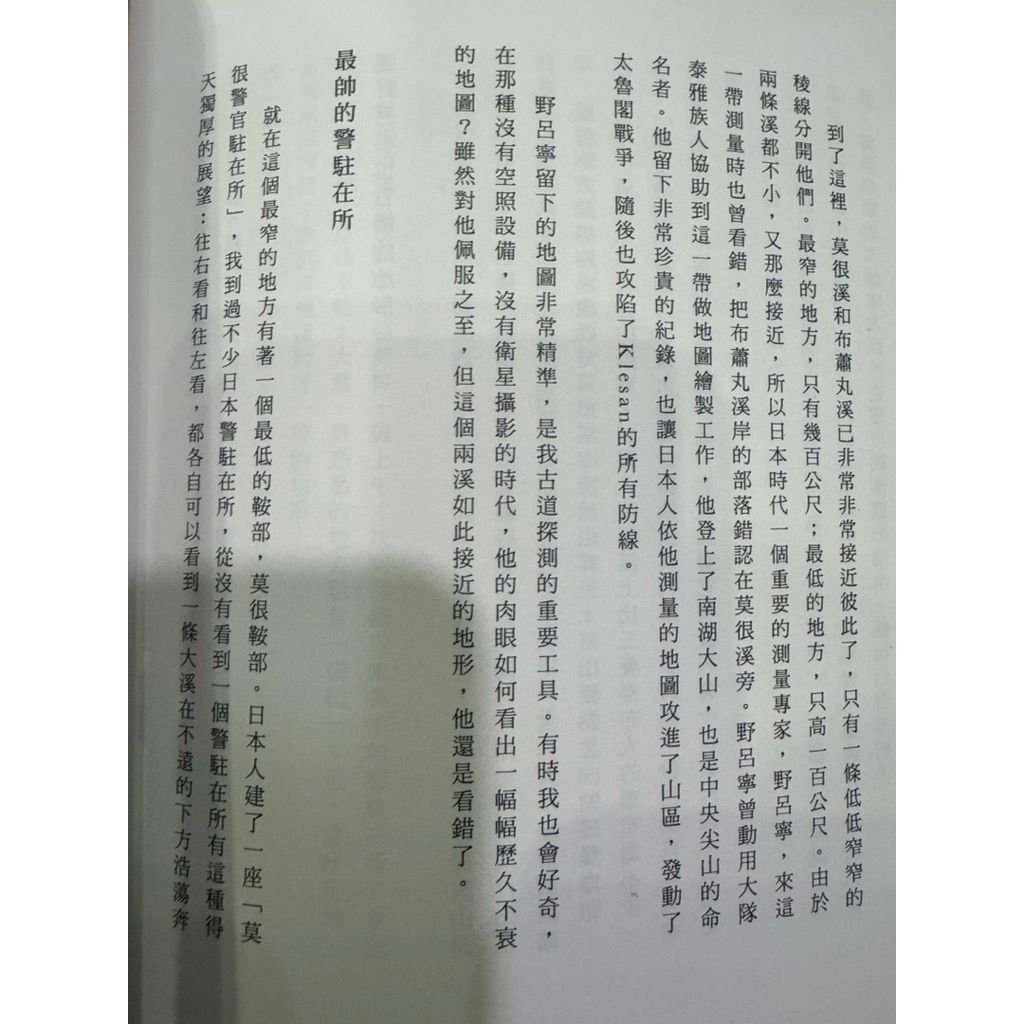 到了這裡，莫很溪和布蕭丸溪已非常非常接近彼此了，只有一條低低窄窄的
稜線分開他們。最窄的地方，只有幾百公尺；最低的地方，只高一百公尺。由於
兩條溪都不小，又那麼接近，所以日本時代一個重要的測量專家，野呂寧，來這
一帶測量時也曾看錯，把布蕭丸溪岸的部落錯認在莫很溪旁。野呂寧曾動用大隊
泰雅族人協助到這一帶做地圖繪製工作，他登上了南湖大山，也是中央尖山的命
名者。他留下非常珍貴的紀錄，也讓日本人依他測量的地圖攻進了山區，發動了
太魯閣戰爭，隨後也攻陷了Klesan的所有防線。
野呂寧留下的地圖非常精準，是我古道探測的重要工具。有時我也會好奇，
在那種沒有空照設備，沒有衛星攝影的時代，他的肉眼如何看出一幅幅歷久不衰
的地圖？雖然對他佩服之至，但這個兩溪如此接近的地形，他還是看錯了。
最帥的警駐在所
就在這個最窄的地方有著一個最低的鞍部，莫很鞍部。日本人建了一座「莫
很警官駐在所」，我到過不少日本警駐在所，從沒有看到一個警駐在所有這種得
天獨厚的展望：往右看和往左看，都各自可以看到一條大溪在不遠的下方浩蕩奔